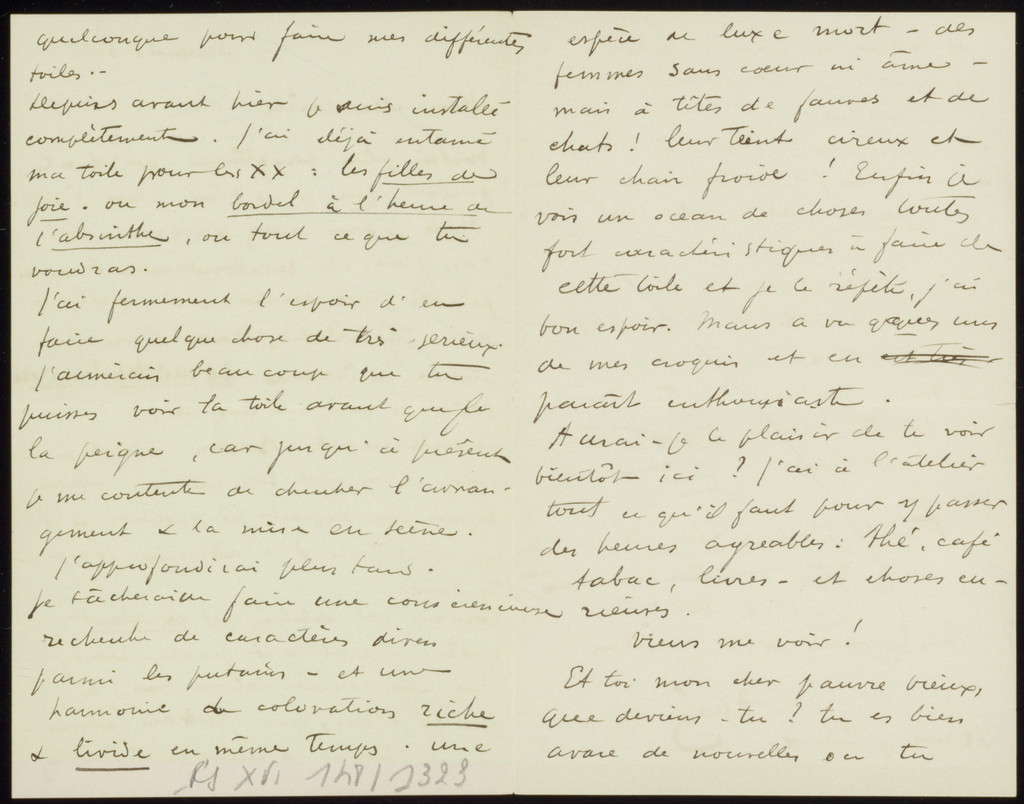 quelconque pour faire mes différentes
toiles.-
Depuis avant hier je suis installé
complètement. J'ai déjà entamé
ma toile pour les XX : les filles de
joie. ou mon bordel à l'heure de
l'absinthe, ou tout ce que tu
voudras.
J'ai fermement l'espoir d'en
faire quelque chose de très serieux.
J'aimerais beaucoup que tu
puisses voir la toile avant que je
la peigne, car jusqu'à présent
je me contente de chercher l'arran-
gement & la mise en scène.
J'approfondirai plus tard.
Je tâcherai de faire une consciencieuse
recherche de caractères divers
parmi les putains - et une
harmonie de colorations riche
& livide en même temps. une
espèce de luxe mort - des
femmes sans coeur ni âme -
mais à têtes de fauves et de
chats ! leur teint cireux et
leur chair froide ! Enfin je
vois un ocean de choses toutes
fort caractéristiques à faire de
cette toile et je le répète, j'ai
bon espoir. Maus a vu qques uns
de mes croquis et en
paraît enthousiaste.
Aurai-je le plaisir de te voir
bientôt ici ? J'ai à l'atelier
tout ce qu'il faut pour y passer
des heures agreables : thé, café
tabac, livres - et choses cu-
rieuses.
Viens me voir !
Et toi mon cher pauvre vieux,
que deviens-tu ? tu es bien
avare de nouvelles ou tu
RS XVI 148/1323